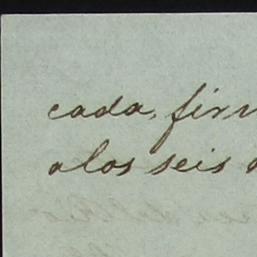 cada, fir
alos seis